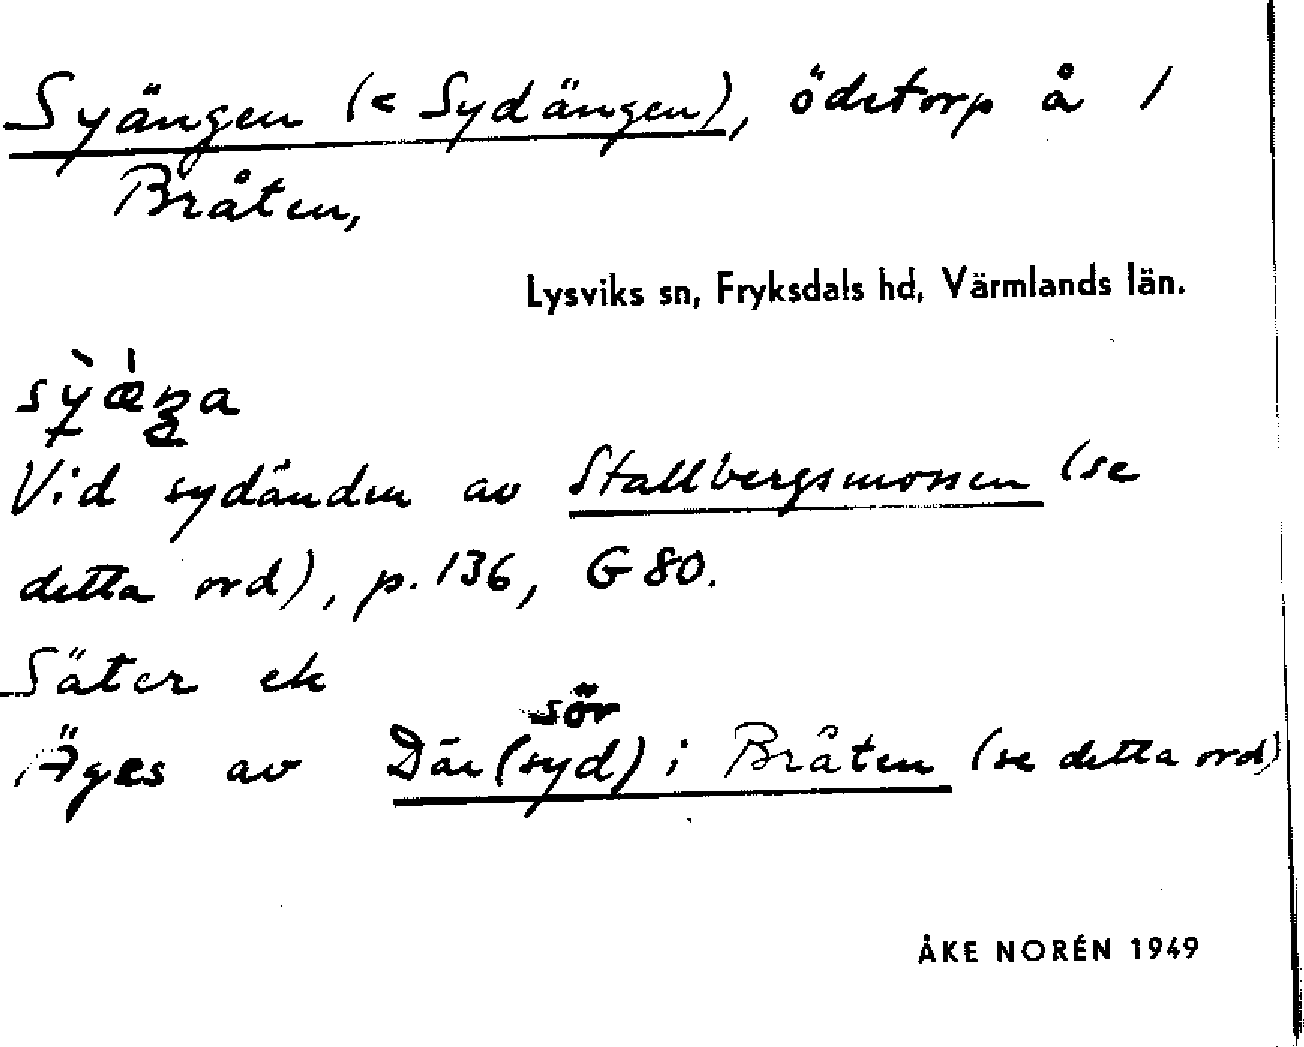 Syängen (< Sydängen), ödetorp å 1
Bråten,
Lysviks sn, Fryksdals hd, Värmlands län.
Vid sydänden av Stallbergsmossen (se
detta ord), p. 136, G 80.
Säter ek
sör
Äges av Där (syd) i Bråten (se detta ord)
ÅKE NORÉN 1949